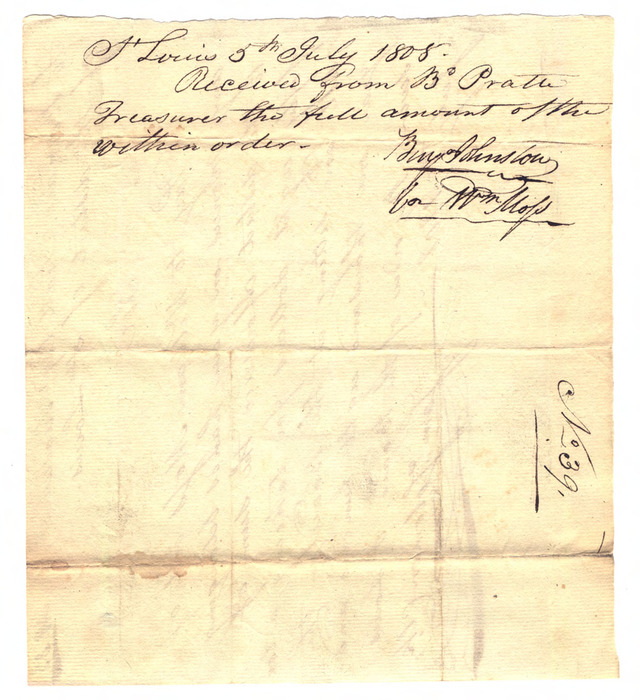 St Louis 5th July 1808.
Received from Bd Pratte
Treasurer the full amount of the
within order.
Benj Johnston
for Wm Moss
No 39.